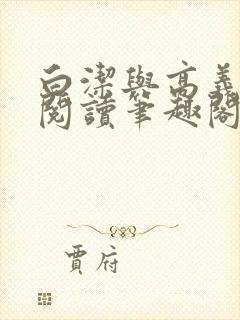 白潔與高義
閱讀筆趣閣
賈府